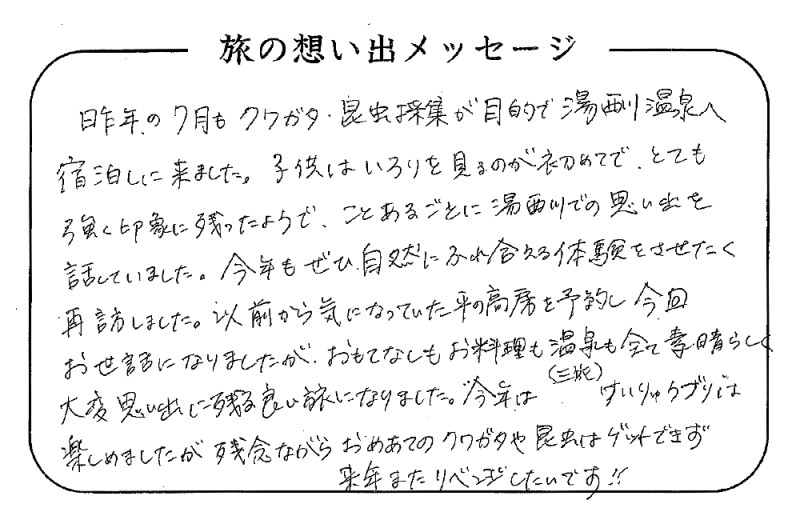 旅の想い出メッセージ
昨年の7月もクワガタ・昆虫採集が目的で湯西川温泉へ
宿泊しに来ました。子供はいろりを見るのが初めてで、とても
強く印象に残ったようで、ことあるごとに湯西川での思い出を
話していました。今年もぜひ自然にふれ合える体験をさせたく
再訪しました。以前から気になっていた平の高房を予約し今回
お世話になりましたが、おもてなしもお料理も温泉も全て素晴らしく
大変思い出に残る良い旅になりました。今年は(三依)けいりゅうづりは
楽しめましたが残念ながらおめあてのクワガタや昆虫はゲットできず
来年またリベンジしたいです!!